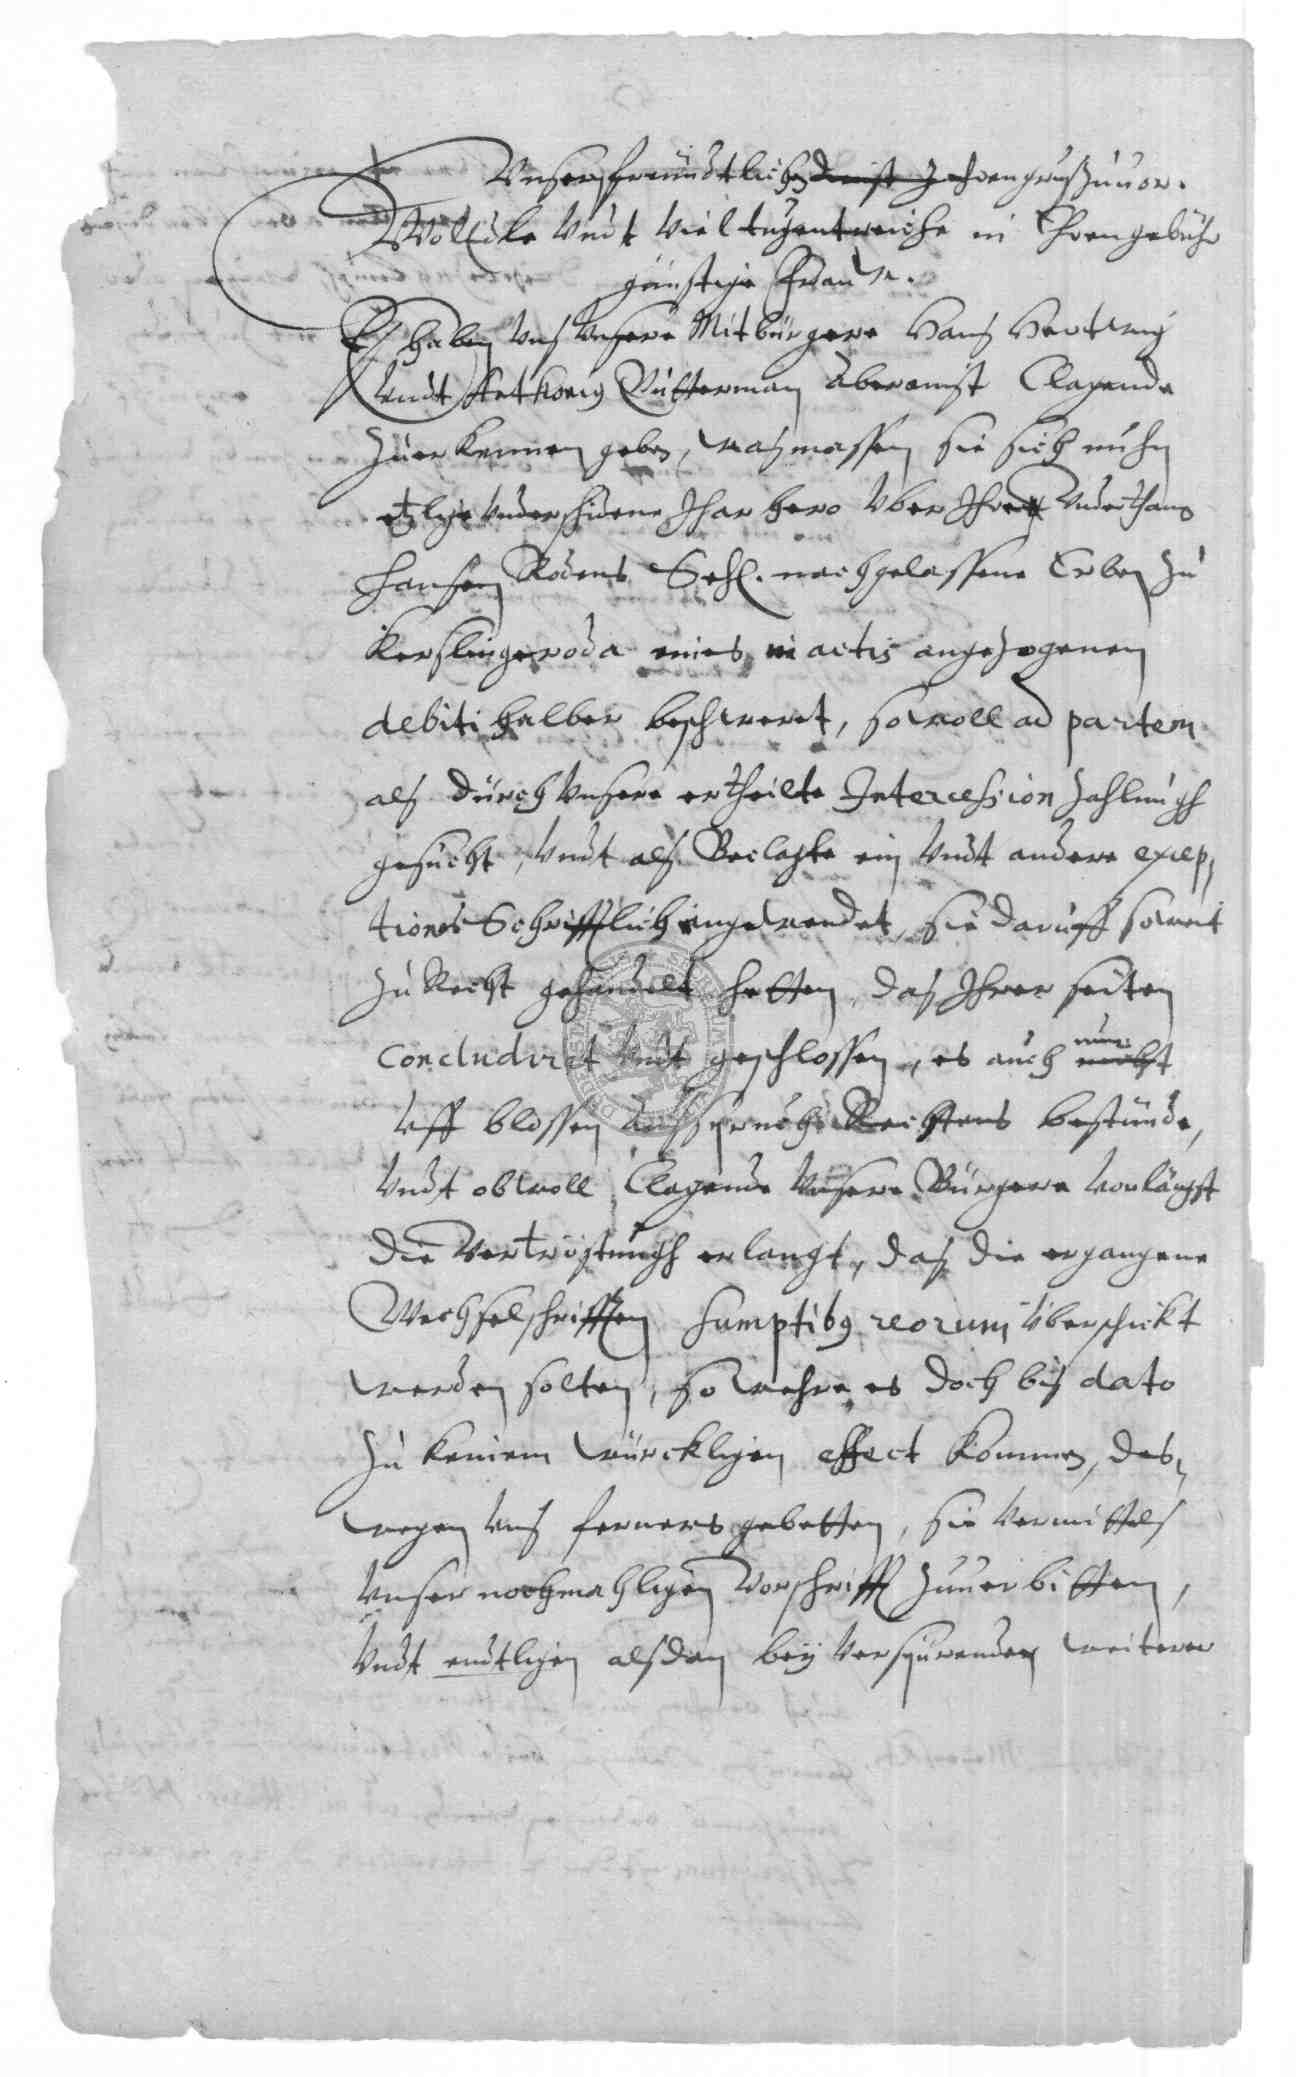 Unsern freundtlichen dienst Ehrengruß zuvor.
WolEdle Undt Viel tugentreiche in Ehrengebühr
günstige Frau.
Es haben Uns Unsere Mitbürgere Hans Hartwig
Undt Butterman abermist Clagende
zuerkennen geben, wasmassen sie sich nuhn
etzlige Underschidene Jhar hero Uber Ihre Underthans
Hansen Rodens Sehl. nachgelassene Erben zu
Kerslingeroda eines in actis angezogenen
debiti halber beschweret, sowoll ad partem
als durch Unsere ertheilte Intercession zahlungh
gesucht, Undt als Beclagte ein Undt andere excep,
tiones Schrifftlich eingewendet, sie daruff soweit
zu Recht gehandelt hetten, das Ihrer seiten
concludiret Undt geschlossen, es auch nuhr
Uff blossen Außspruch Rechtens bestünde,
Undt obwoll Clagende Unsere Bürgere Vorlängst
die Vertröstungh erlangt, das die ergangene
Wechselschrifften sumptibus reorum überschickt
werden solten, so wehre es doch bis dato
zu keinem würckligen effect kommen, des,
wegen Uns ferners gebetten, sie Vermittels
Unser nochmahligen Vorschrifft zuuerbitten,
Undt endtligen alsdan bey Verspürenden weiterer